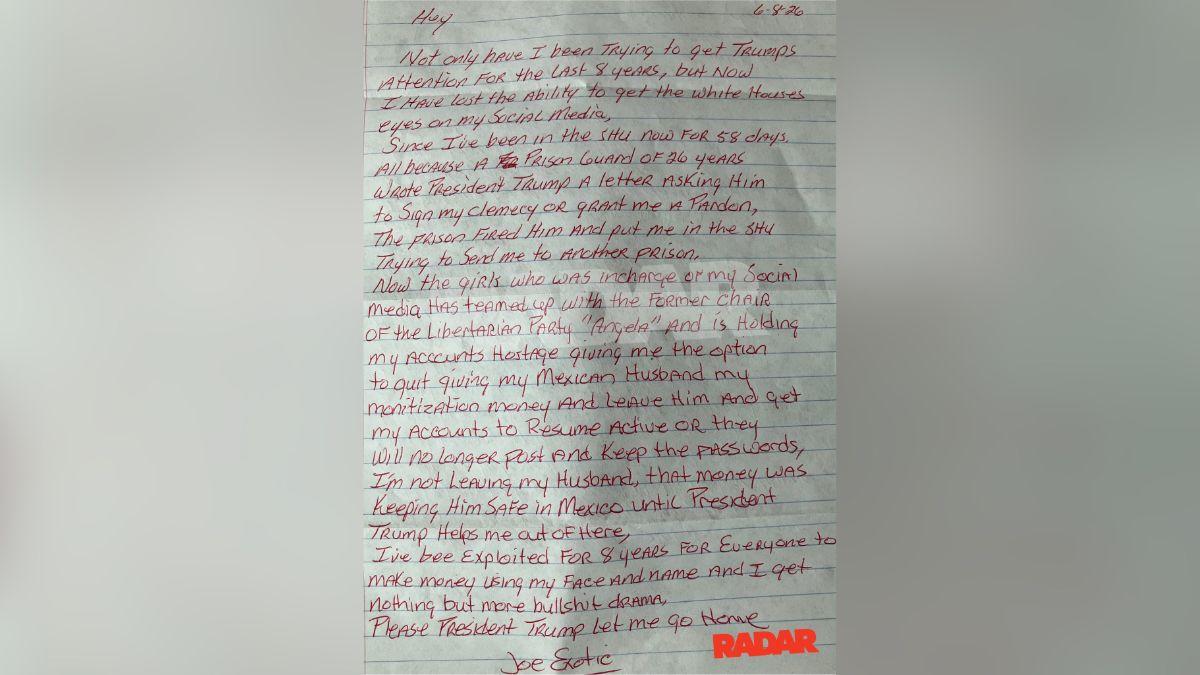 Hey 6-8-26
Not only have I been Trying to get Trumps
Attention For the last 8 years, but Now
I Have lost the Ability to get the White Houses
eyes on my Social Media,
Since I've been in the SHU now for 58 days.
All because A Prison Guard of 26 years
Wrote President Trump A letter Asking Him
to Sign my Clemecy or grant me A Pardon,
The prison Fired Him And put me in the SHU
Trying to Send me to Another prison.
Now the girls who was incharge of my Social
media Has teamed up with the Former Chair
of the Libertarian Party "Angela" And is Holding
my Accounts Hostage giving me the option
to quit giving my Mexican Husband my
monitization money And Leave Him And get
my Accounts to Resume Active or they
will no longer post And Keep the passwords,
I'm not Leaving my Husband, that money was
Keeping Him Safe in Mexico until President
Trump Helps me out of Here,
I've bee Exploited For 8 years For Everyone to
make money using my Face and name And I get
nothing but more bullshit drama,
Please President Trump Let me go Home
Joe Exotic
RADAR